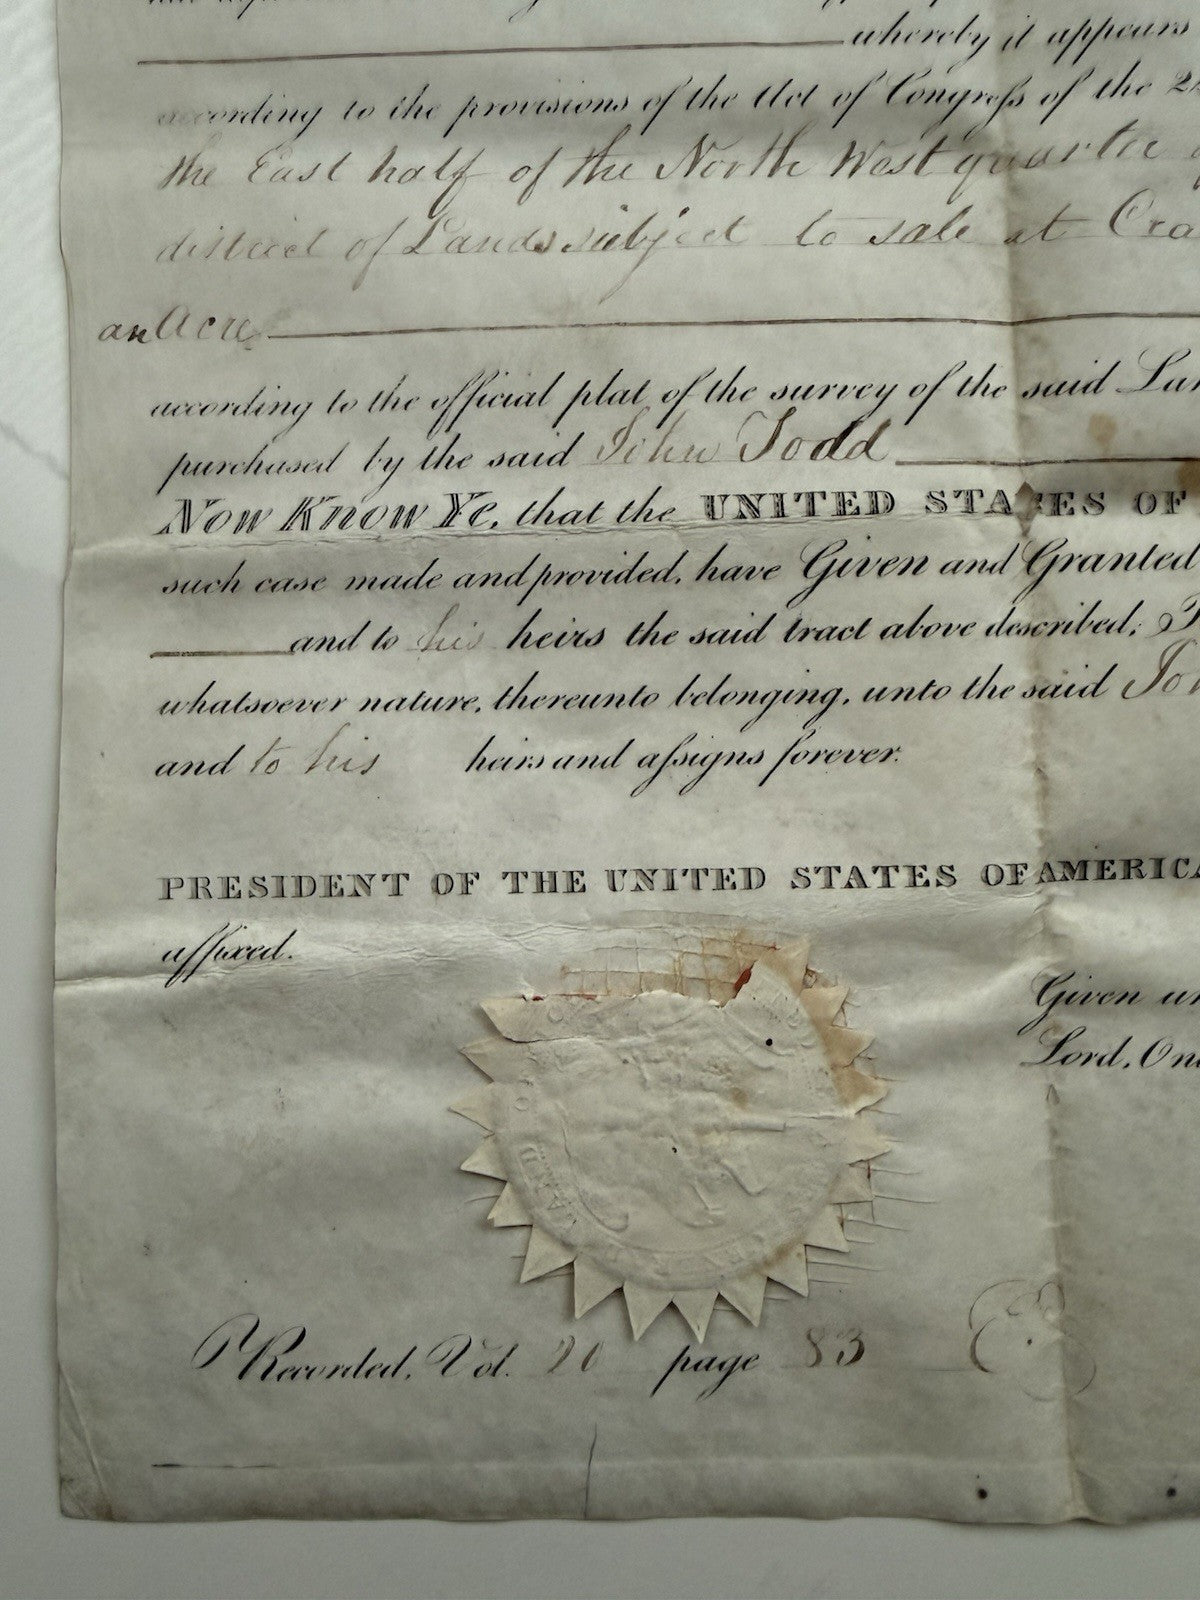 whereby it appears
according to the provisions of the Act of Congreſs of the 2
the East half of the North West quarter
district of Lands subject to sale at Cra
an Acre
according to the official plat of the survey of the said Lan
purchased by the said John Todd
NOW KNOW YE, that the UNITED STATES OF
such case made and provided, have Given and Granted
and to his heirs the said tract above described;
whatsoever nature, thereunto belonging, unto the said Joh
and to his heirs and aſsigns forever.
PRESIDENT OF THE UNITED STATES OF AMERICA
affixed.
Given un
Lord, One
Recorded, Vol. 20 page 83